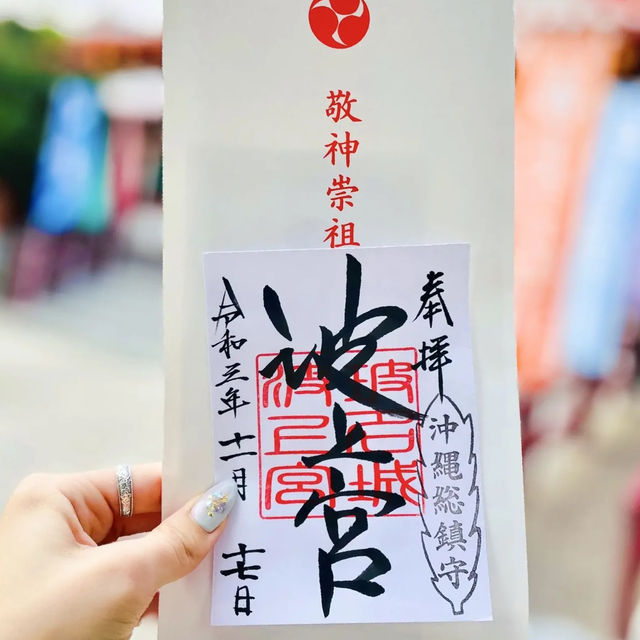 敬神崇祖
奉拝
沖縄総鎮守
波上宮
令和三年十一月十七日